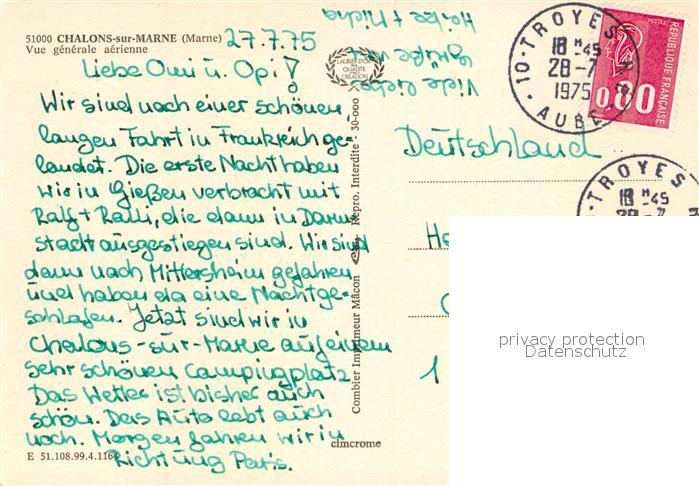 51000 CHALONS-sur-MARNE (Marne)
Vue générale aérienne
27.7.75
Liebe Omi u. Opi!
Wir sind nach einer schönen,
langen Fahrt in Frankreich ge-
landet. Die erste Nacht haben
wir in Gießen verbracht mit
Ralf + Ralli, die dann in Darm-
stadt ausgestiegen sind. Wir sind
dann nach Mittersheim gefahren
und haben da eine Nacht ge-
schlafen. Jetzt sind wir in
Chalons-sur-Marne auf einem
sehr schönen Campingplatz.
Das Wetter ist bisher auch
schön. Das Auto lebt auch
noch. Morgen fahren wir in
Richtung Paris.
E 51.108.99.4.116
Viele liebe
Grüße von
Heike + Micha
LAURIER D'OR
DE LA
QUALITÉ
CRÉATION
Combier Imprimeur Mâcon
Repro. Interdite - 30-000
cimcrome
10-TROYES
18 H 45
28-7
1975
AUBE
POSTES
REPUBLIQUE FRANÇAISE
0,80
TROYES
18 H 45
28-7
Deutschland
He
1
privacy protection
Datenschutz